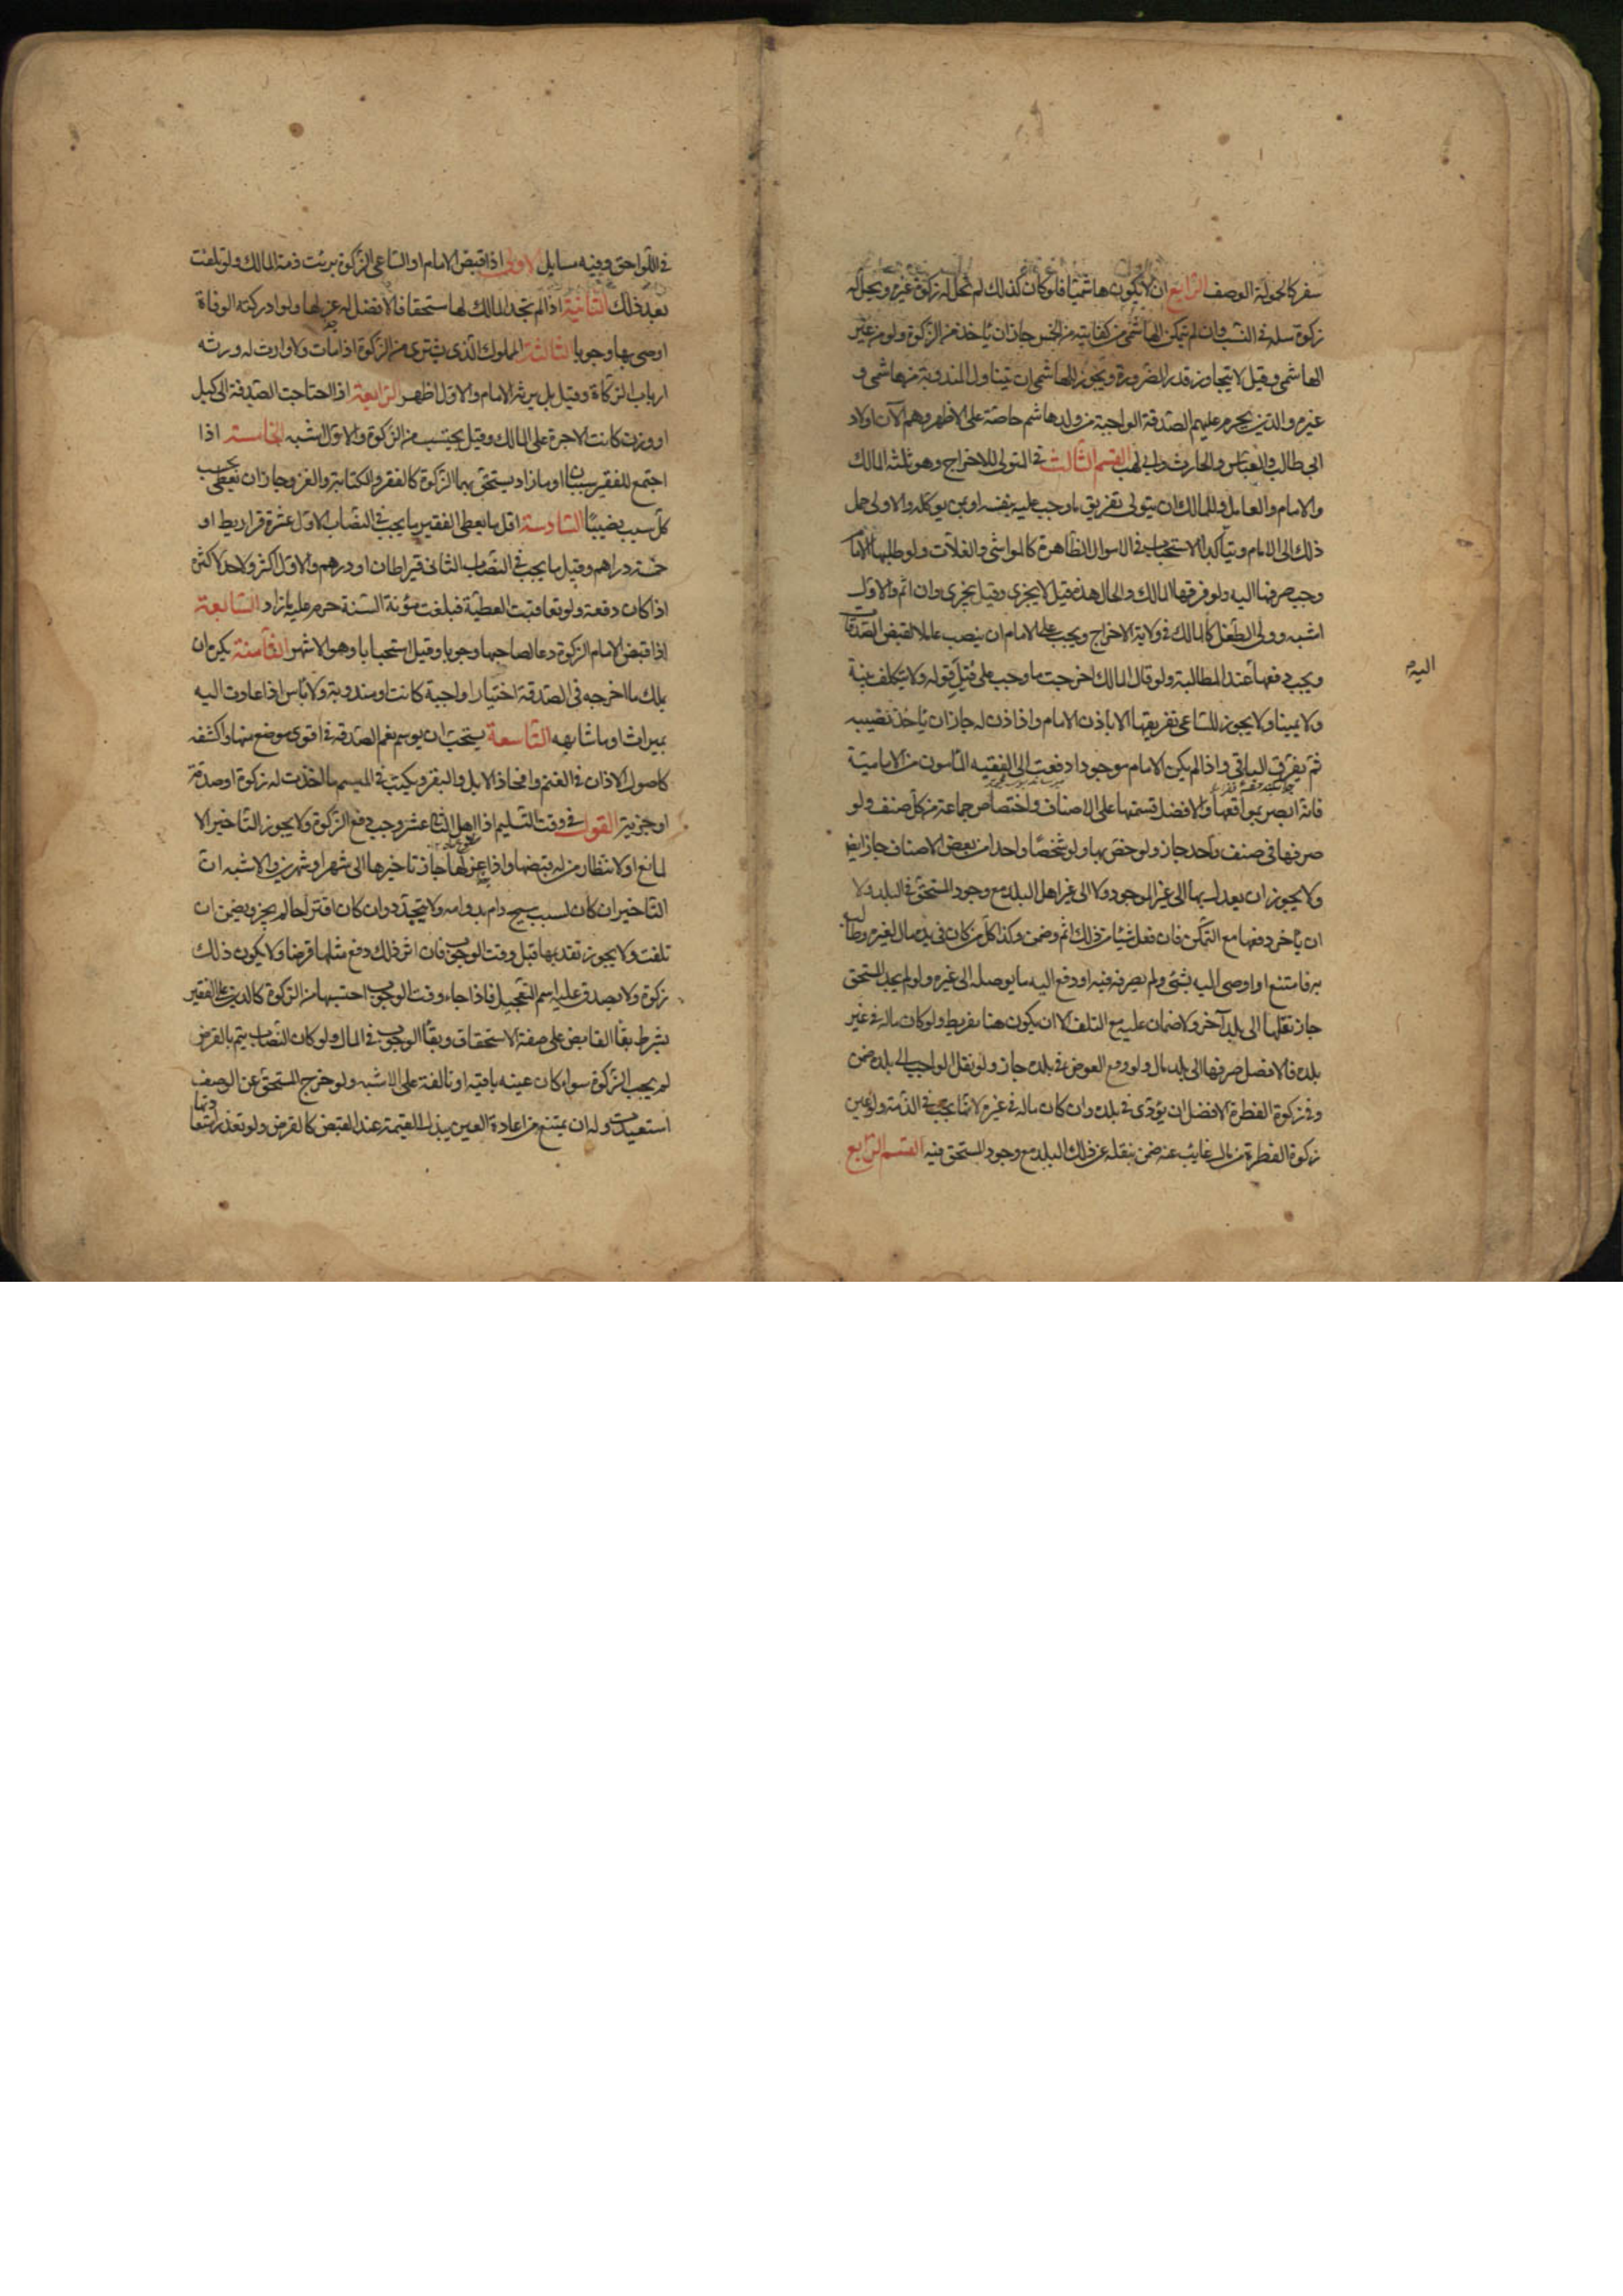 سفر كالحمولة الوصف الرابع ان لا يكون هاشميا فلو كان كذلك لم تحل له زكوة غيره ويحل له
زكوة مثله في النسب وان لم يتمكن الهاشمي من كفايته من الخمس جاز ان ياخذ من الزكوة ولو من غير
الهاشمي وقيل لا يتجاوز قدر الضرورة ويجوز للهاشمي ان يتناول المندوبة من هاشمي و
غيره والذين يحرم عليهم الصدقة الواجبة من ولد هاشم خاصة على الاظهر وهم الآن اولاد
ابي طالب والعباس والحارث وابي لهب القسم الثالث في المتولي للاخراج وهو ثلثة المالك
والامام والعامل وللمالك ان يتولى تفريق ما وجب عليه بنفسه او بمن يوكله والاولى حمل
ذلك الى الامام ويتاكد الاستحباب في الاموال الظاهرة كالمواشي والغلات ولو طلبها الامام
وجب صرفها اليه ولو فرقها المالك والحال هذه قيل لا يجزي وقيل يجزي وان اثم والاول
اشبه وولي الطفل كالمالك في ولاية الاخراج ويجب على الامام ان ينصب عاملا لقبض الصدقات
ويجب دفعها عند المطالبة ولو قال المالك اخرجت ما وجب علي قبل قوله ولا يتكلف بينة
اليه
ولا يمينا ولا يجوز للساعي تفريقها الا باذن الامام واذا اذن له جاز ان ياخذ نصيبه
ثم يفرق الباقي واذا لم يكن الامام موجودا دفعت الى الفقيه المأمون من الامامية
فانه ابصر بمواقعها والافضل قسمتها على الاصناف واختصاص جماعة من كل صنف ولو
صرفها في صنف واحد جاز ولو خص بها ولو شخصا واحدا من بعض الاصناف جاز ايضا
ولا يجوز ان يعدل بها الى غير الموجود ولا الى غير اهل البلد مع وجود المستحق في البلد ولا
ان يأخر دفعها مع التمكن فان فعل شيئا من ذلك اثم وضمن وكذا كل من كان في يده مال لغيره وطالبه
به فامتنع او اوصى اليه بشئ ولم يصرفه فيه او دفع اليه ما يوصله الى غيره ولو لم يجد المستحق
جاز نقلها الى بلد آخر ولا ضمان عليه مع التلف الا ان يكون هناك تفريط ولو كان ماله في غير
بلده فالافضل صرفها الى بلد المال ولو دفع العوض في بلده جاز ولو نقل الواجب الى بلده ضمن
وفي زكوة الفطرة الافضل ان يؤدى في بلده وان كان ماله في غيره لانها يجب في الذمة ولو عين
زكوة الفطرة من مال غايب عنه ضمن بنقله عن ذلك البلد مع وجود المستحق فيه القسم الرابع
في اللواحق وفيه مسايل الاولى اذا قبض الامام او الساعي الزكوة برئت ذمة المالك ولو تلفت
بعد ذلك الثانية اذا لم يجد المالك لها مستحقا فالافضل له عزلها ولو ادركته الوفاة
اوصى بها وجوبا الثالثة المملوك الذي يشترى من الزكوة اذا مات ولا وارث له ورثه
ارباب الزكاة وقيل بل يرثه الامام والاول اظهر الرابعة اذا احتاجت الصدقة الى كيل
او وزن كانت الاجرة على المالك وقيل يحتسب من الزكوة والاول اشبه الخامسة اذا
اجتمع للفقير سببان او ما زاد يستحق بهما الزكوة كالفقر والكتابة والغزو جاز ان يعطى بحسب
كل سبب نصيبا السادسة اقل ما يعطى الفقير ما يجب في النصاب الاول عشرة قراريط او
خمسة دراهم وقيل ما يجب في النصاب الثاني قيراطان او درهم والاول اكثر ولا حد لاكثره
اذا كان دفعة ولو تعاقبت العطية فبلغت مؤنة السنة حرم عليه ما زاد السابعة
اذا قبض الامام الزكوة دعا لصاحبها وجوبا وقيل استحبابا وهو الاشهر الثامنة يكره ان
يملك ما اخرجه في الصدقة اختيارا واجبة كانت او مندوبة ولا بأس اذا عادت اليه
بميراث او ما شابهه التاسعة يستحب ان يوسم نعم الصدقة في اقوى موضع منها واكشفه
كاصول الاذان في الغنم وافخاذ الابل والبقر ويكتب في الميسم ما اخذت له زكوة او صدقة
او جزية القول في وقت التسليم اذا اهل الثاني عشر وجب دفع الزكوة ولا يجوز التاخير الا
لمانع او لانتظار من له قبضها واذا عزلها جاز تاخيرها الى شهر او شهرين والاشبه ان
التاخير ان كان لسبب مبيح دام بدوامه ولا يتحدد وان كان اقتراحا لم يجز ويضمن ان
تلفت ولا يجوز تقديمها قبل وقت الوجوب فان اثر ذلك دفع مثلها قرضا ولا يكون ذلك
زكوة ولا يصدق عليه اسم التعجيل فاذا جاء وقت الوجوب احتسبها من الزكوة كالدين على الفقير
بشرط بقاء القابض على صفة الاستحقاق وبقاء الوجوب في المال ولو كان النصاب يتم بالقرض
لم يجب الزكوة سواء كان عينه باقية او تالفة على الاشبه ولو خرج المستحق عن الوصف
استعيدت وله ان يمتنع من اعادة العين ببذل القيمة عند القبض كالقرض ولو تعذر استعادتها